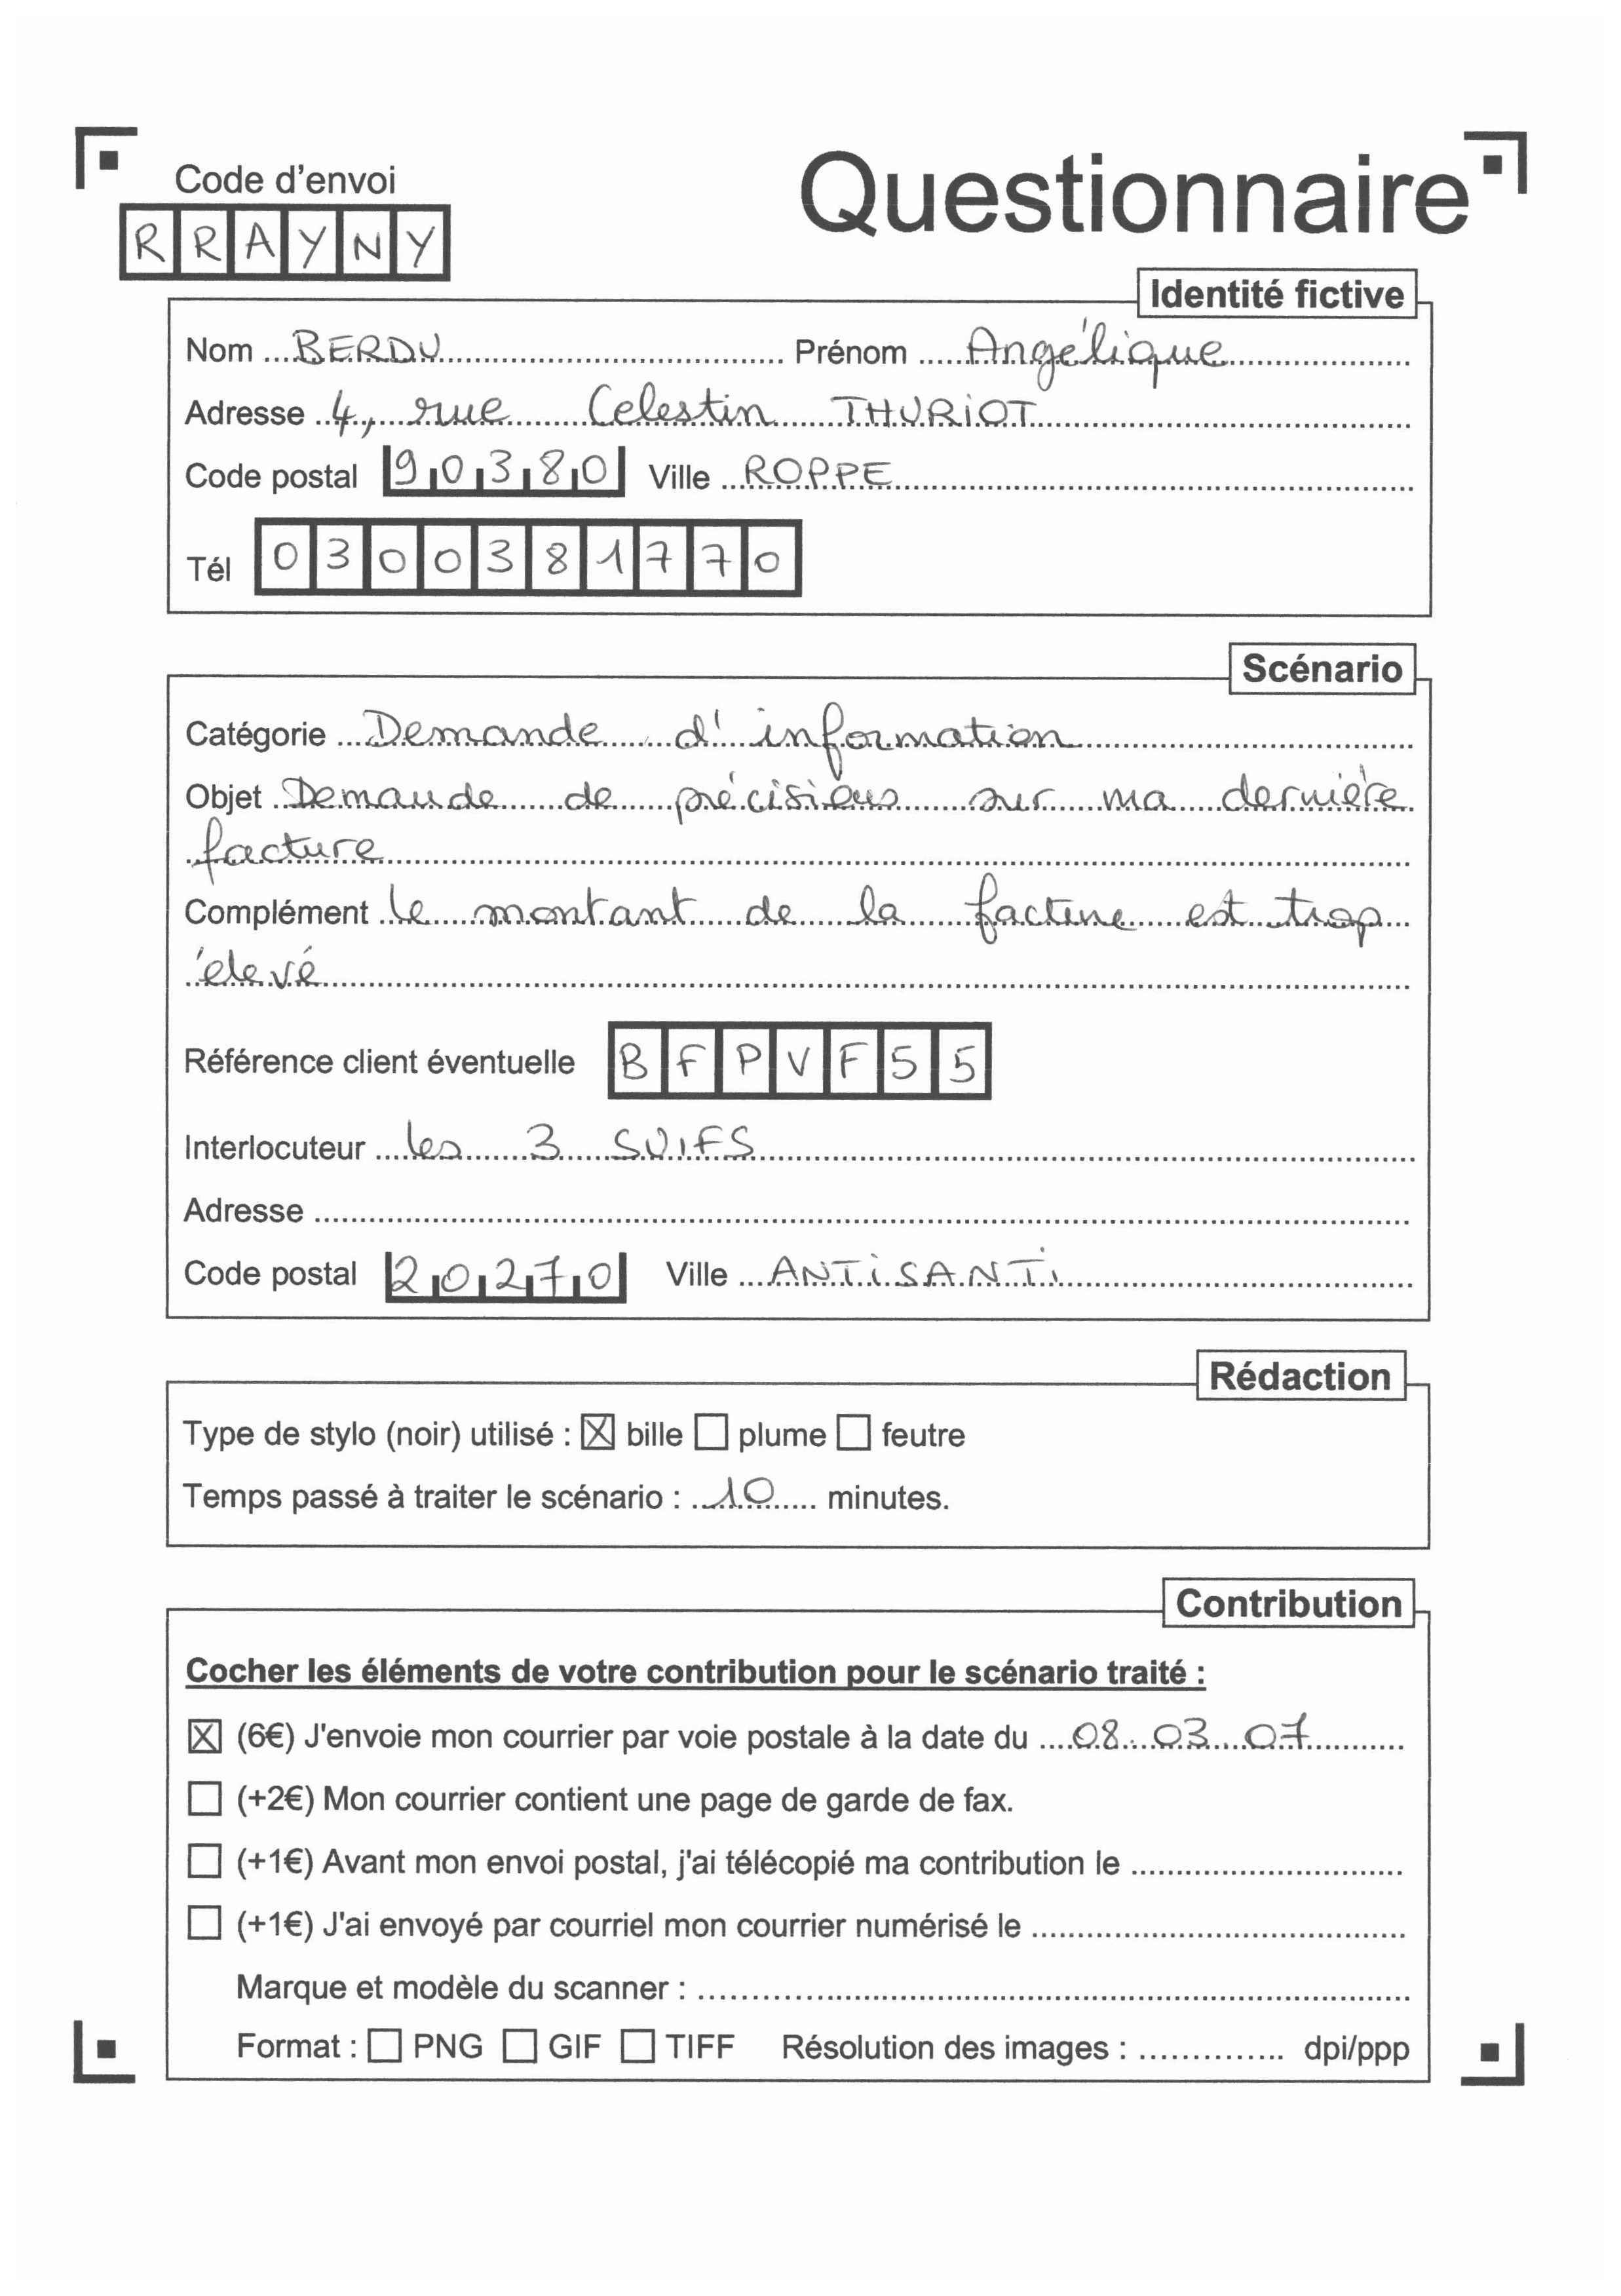 Code d'envoi
Questionnaire
RRAYNY
Identité fictive
Nom BERDU Prénom Angélique
Adresse 4, rue Celestin THURIOT
Code postal 90380 Ville ROPPE
Tél 0300381770
Scénario
Catégorie Demande d'information
Objet Demande de précisions sur ma dernière
facture
Complément le montant de la facture est trop
élevé
Référence client éventuelle BFPVF55
Interlocuteur les 3 SUIFS
Adresse
Code postal 20270 Ville ANTISANTI
Rédaction
Type de stylo (noir) utilisé : ☒ bille ☐ plume ☐ feutre
Temps passé à traiter le scénario : 10 minutes.
Contribution
Cocher les éléments de votre contribution pour le scénario traité :
☒ (6€) J'envoie mon courrier par voie postale à la date du 08.03.07
☐ (+2€) Mon courrier contient une page de garde de fax.
☐ (+1€) Avant mon envoi postal, j'ai télécopié ma contribution le
☐ (+1€) J'ai envoyé par courriel mon courrier numérisé le
Marque et modèle du scanner :
Format : ☐ PNG ☐ GIF ☐ TIFF Résolution des images : dpi/ppp